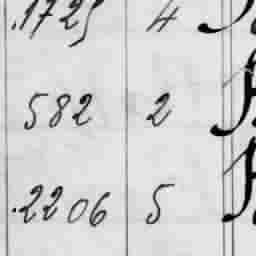 .1725 4
582 2
.2206 5